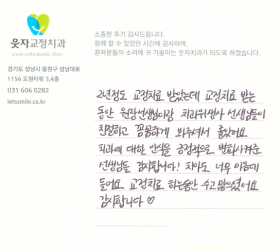 소중한 후기 감사드립니다.
함께 할 수 있었던 시간에 감사하며,
환자분들의 소리에 귀 기울이는 웃자치과가 되도록 하겠습니다.
웃자교정치과
경기도 성남시 중원구 성남대로
1156 도원타워 3,4층
031 606 0282
letsmile.co.kr
2년정도 교정치료 받았는데 교정치료 받는
동안 원장선생님이랑 치과위생사 선생님들이
친절하고 꼼꼼하게 봐주셔서 좋았어요
치과에 대한 인식을 긍정적으로 변화시켜준
선생님들 감사합니다! 치아도 너무 마음에
들어요. 교정치료 하는동안 수고 많으셨어요
감사합니다 ♡